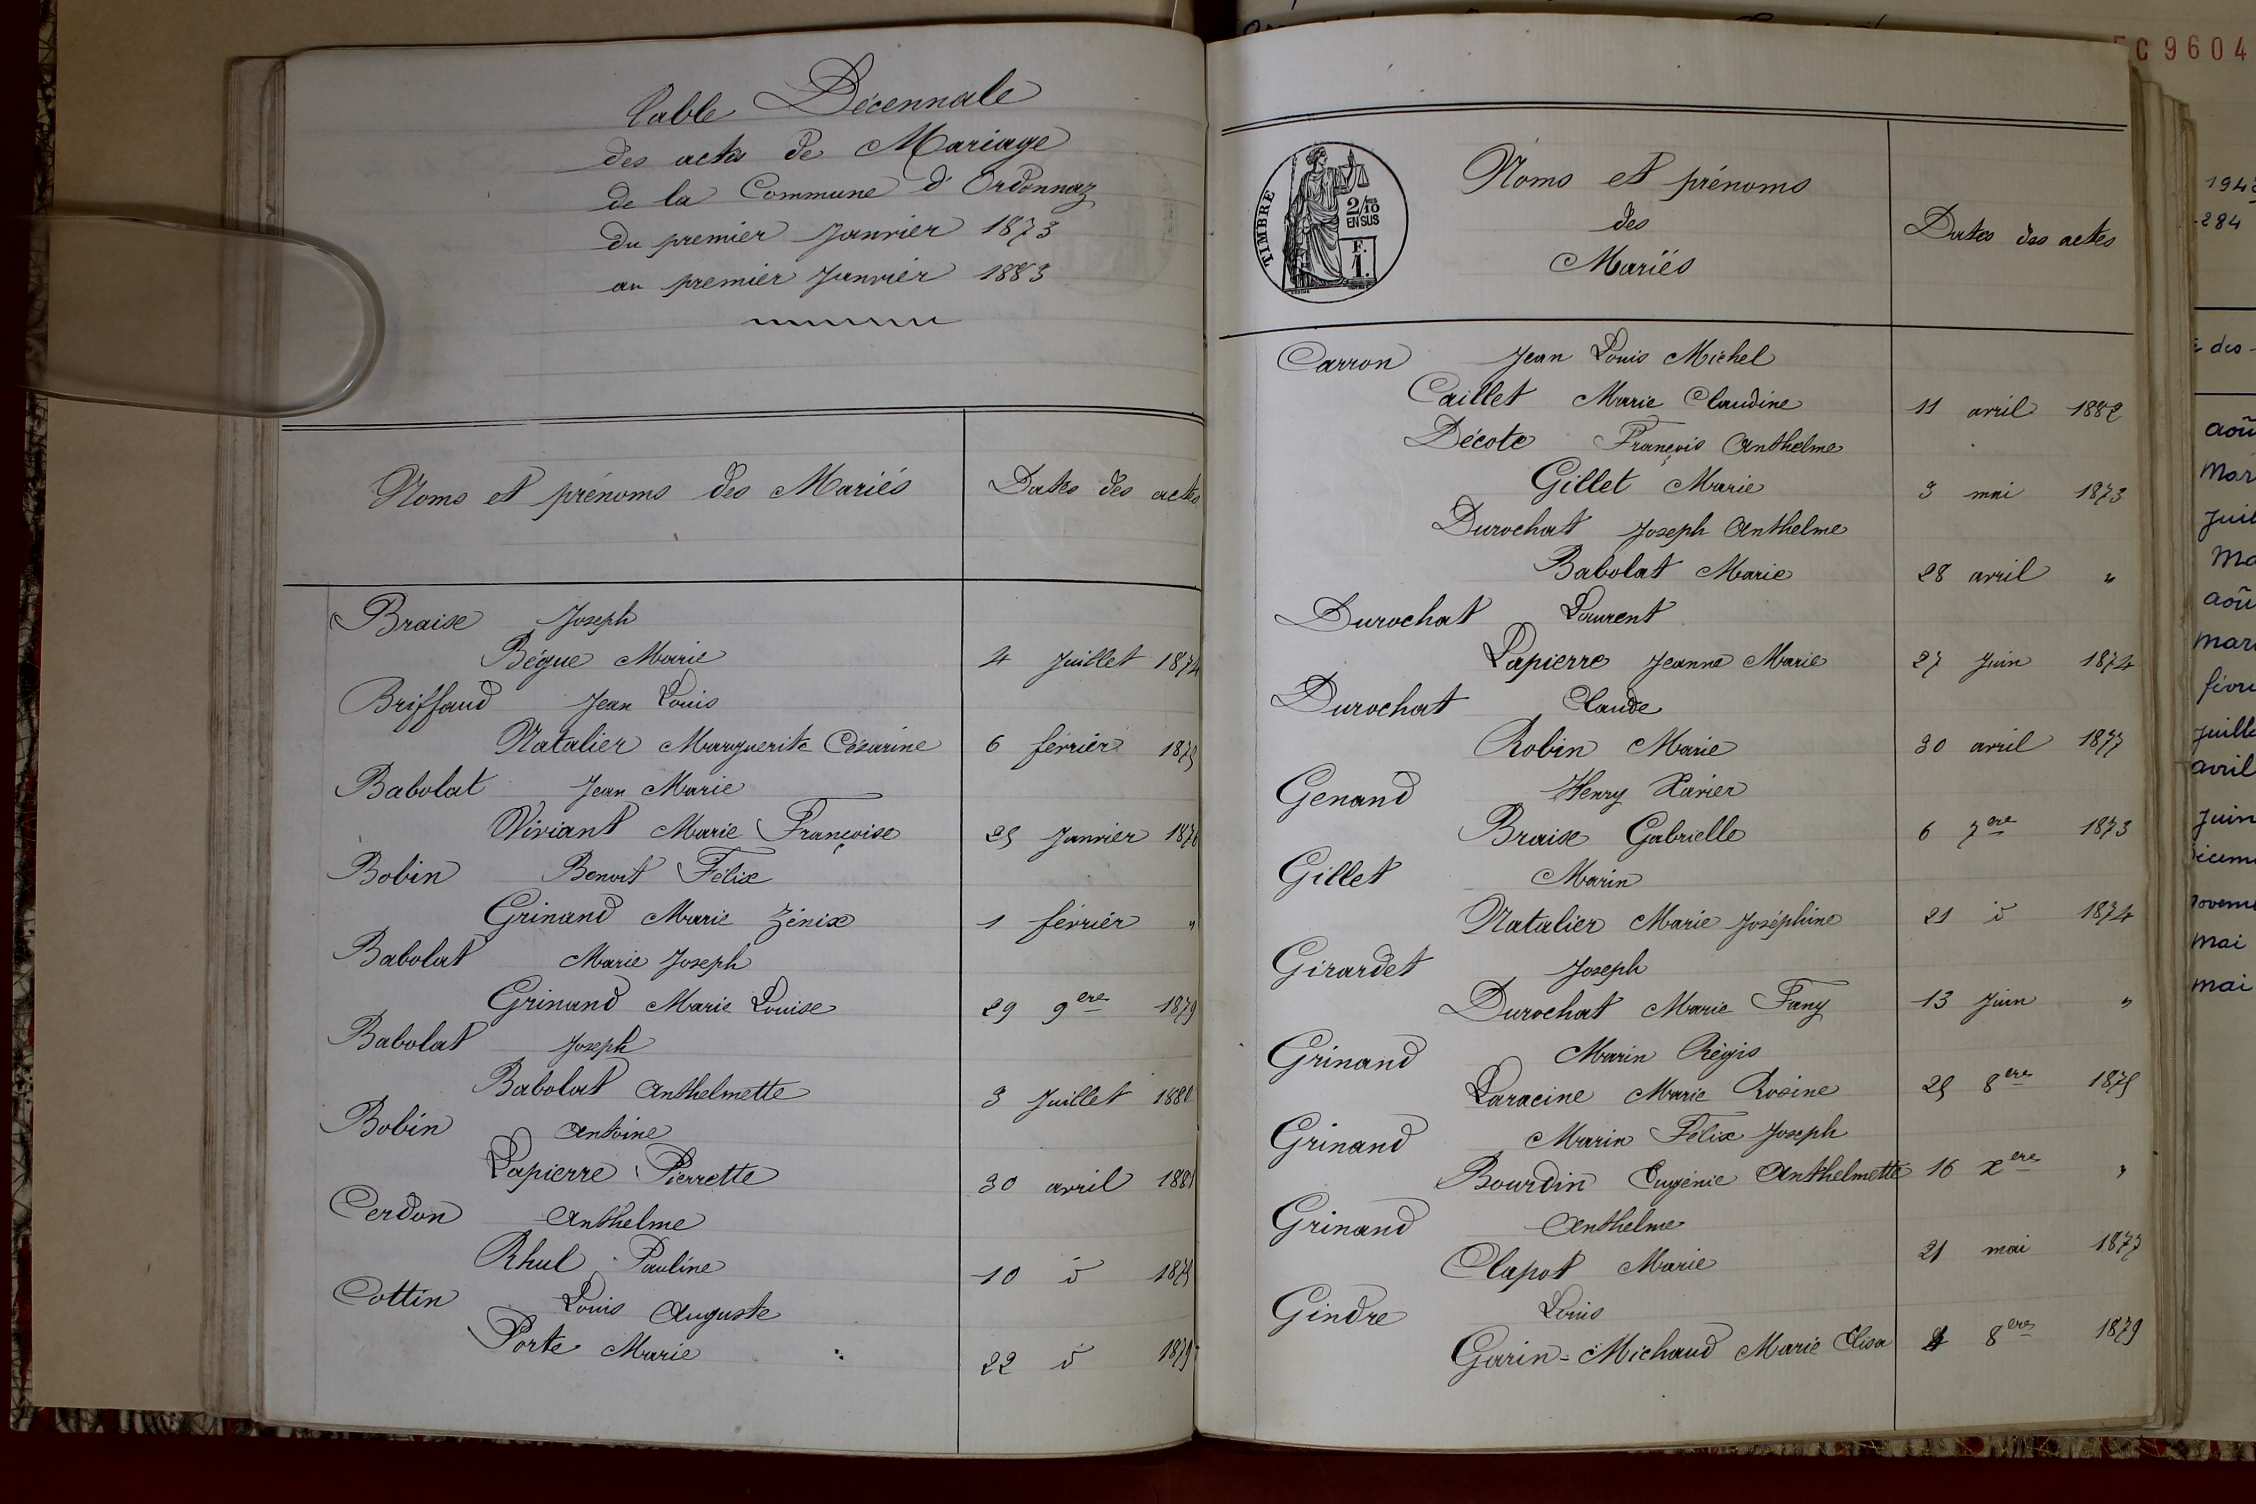 Table Décennale
des actes de Mariage
de la Commune d'Ordonnaz
du premier Janvier 1873
au premier Janvier 1883
Noms et prénoms des Mariés
Dates des actes
Braise Joseph
Bégue Marie 4 Juillet 1874
Briffaud Jean Louis
Natalier Marguerite Césarine 6 février 1875
Babolat Jean Marie
Viviant Marie Françoise 25 Janvier 1876
Bobin Benoit Félix
Grinand Marie Zénix 1 février "
Babolat Marie Joseph
Grinand Marie Louise 29 9ere 1879
Babolat Joseph
Babolat Anthelmette 3 Juillet 1880
Bobin Antoine
Lapierre Pierrette 30 avril 1881
Cerdon Anthelme
Rhul Pauline 10 d 1875
Cottin Louis Auguste
Porte Marie 22 d 1879
TIMBRE
2/10
EN SUS
F.
1.
Noms et prénoms
des
Mariés
Dates des actes
Carron Jean Louis Michel
Caillet Marie Claudine 11 avril 1882
Décote François Anthelme
Gillet Marie 3 mai 1873
Durochat Joseph Anthelme
Babolat Marie 28 avril "
Durochat Laurent
Lapierre Jeanne Marie 27 Juin 1874
Durochat Claude
Robin Marie 30 avril 1877
Genand Henry Xavier
Braise Gabrielle 6 7ere 1873
Gillet Marin
Natalier Marie Joséphine 21 d 1874
Girardet Joseph
Durochat Marie Fany 13 Juin "
Grinand Marin Régis
Laracine Marie Rosine 25 8ere 1875
Grinand Marin Félix Joseph
Bourdin Eugénie Anthelmette 16 xere "
Grinand Anthelme
Clapot Marie 21 mai 1877
Gindre Louis
Garin-Michaud Marie Elisa 4 8ere 1879
C 9604
284
mai
mai